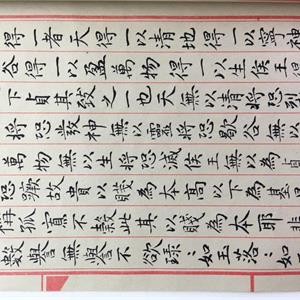 得一者天得一以清地得一以寧神
谷得一以盈萬物得一以生侯王得
下貞其致之一也天無以清將恐裂
將恐發神無以靈將恐歇谷無以
萬物無以生將恐滅侯王無以為貞
恐蹶故貴以賤為本高以下為基
稱孤寡不穀此其以賤為本耶非
數譽無譽不欲琭〻如玉落〻如